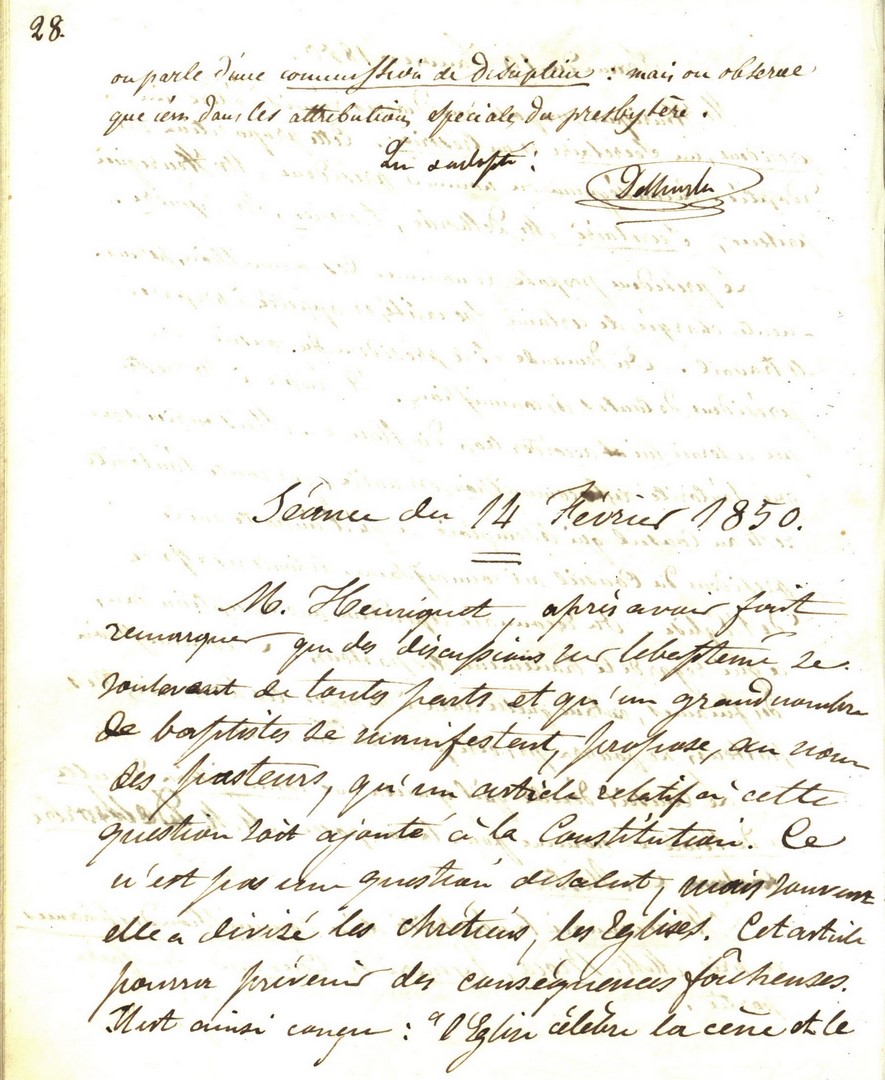 28.
on parle d'une commission de discipline : mais on observe
que c'est dans les attributions spéciales du presbytère.
Lu adopté :
Séance du 14 Février 1850.
M. Henriquet, après avoir fait
remarquer que des discussions sur le baptême se
soulèvent de toutes parts et qu'un grand nombre
de baptistes se manifestent, propose, au nom
des pasteurs, qu'un article relatif à cette
question soit ajouté à la Constitution. Ce
n'est pas une question de salut, mais souvent
elle a divisé les chrétiens, les Eglises. Cet article
pourra prévenir des conséquences fâcheuses.
Il est ainsi conçu : "l'Eglise célèbre la cène et le